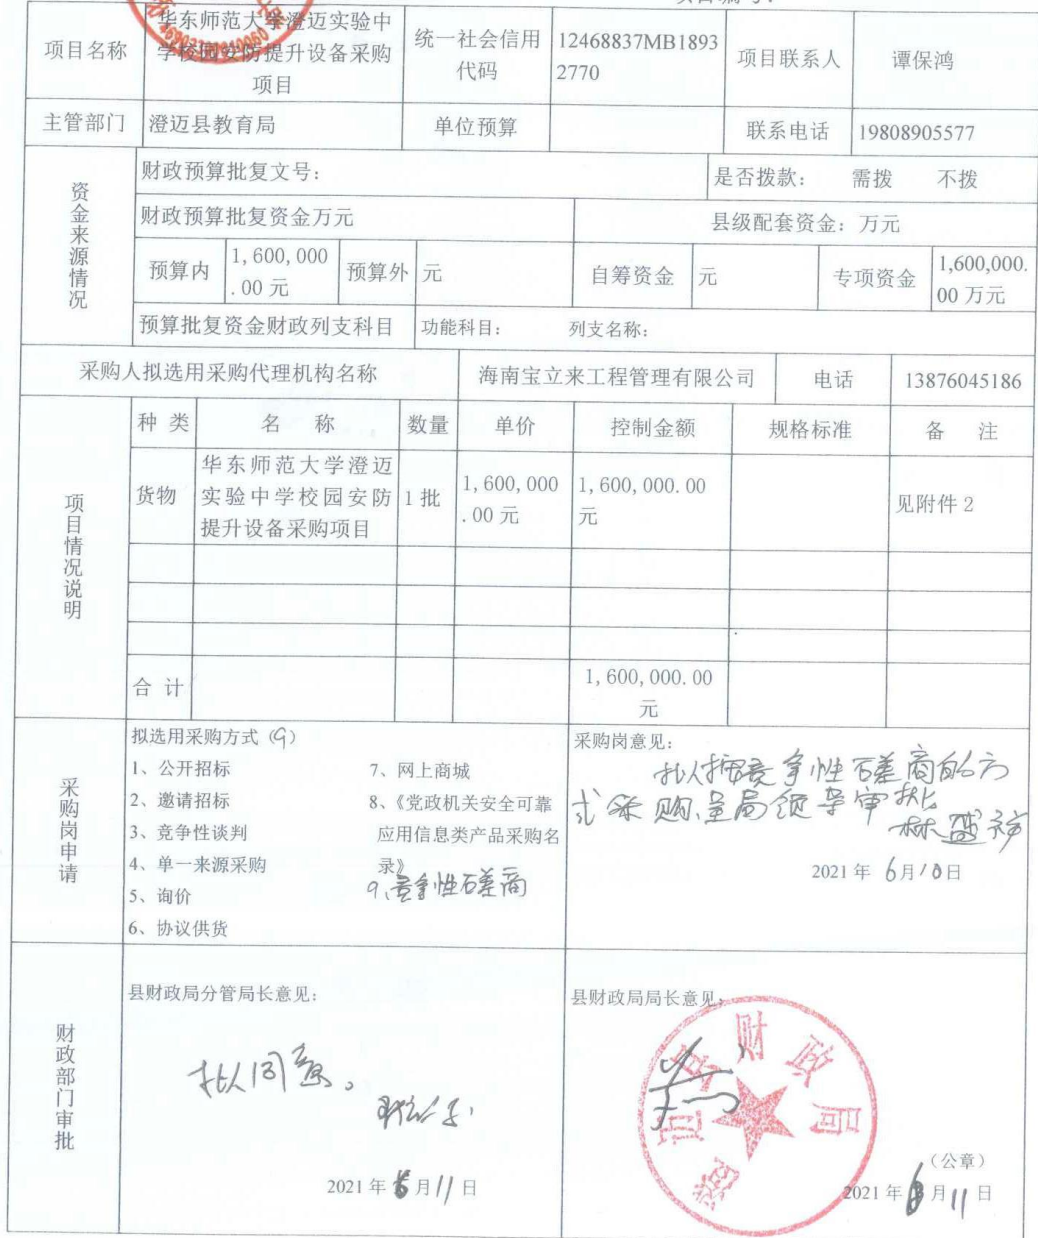 项目名称
华东师范大学澄迈实验中
学校园安防提升设备采购
项目
统一社会信用
代码
12468837MB1893
2770
项目联系人
谭保鸿
主管部门
澄迈县教育局
单位预算
联系电话
19808905577
资金来源情况
财政预算批复文号：
是否拨款： 需拨 不拨
财政预算批复资金万元
县级配套资金：万元
预算内
1,600,000
.00 元
预算外
元
自筹资金
元
专项资金
1,600,000.
00 万元
预算批复资金财政列支科目
功能科目： 列支名称：
采购人拟选用采购代理机构名称
海南宝立来工程管理有限公司
电话
13876045186
项目情况说明
种 类
名 称
数量
单价
控制金额
规格标准
备 注
货物
华东师范大学澄迈
实验中学校园安防
提升设备采购项目
1 批
1,600,000
.00 元
1,600,000.00
元
见附件 2
合 计
1,600,000.00
元
采购岗申请
拟选用采购方式（9）
1、公开招标
2、邀请招标
3、竞争性谈判
4、单一来源采购
5、询价
6、协议供货
7、网上商城
8、《党政机关安全可靠
应用信息类产品采购名
录》
9、竞争性磋商
采购岗意见：
拟按竞争性磋商的方
式采购，呈局领导审批
2021 年 6月10日
财政部门审批
县财政局分管局长意见：
拟同意。
2021 年 6 月 11 日
县财政局局长意见：
澄迈县财政局
（公章）
2021 年 6 月 11 日